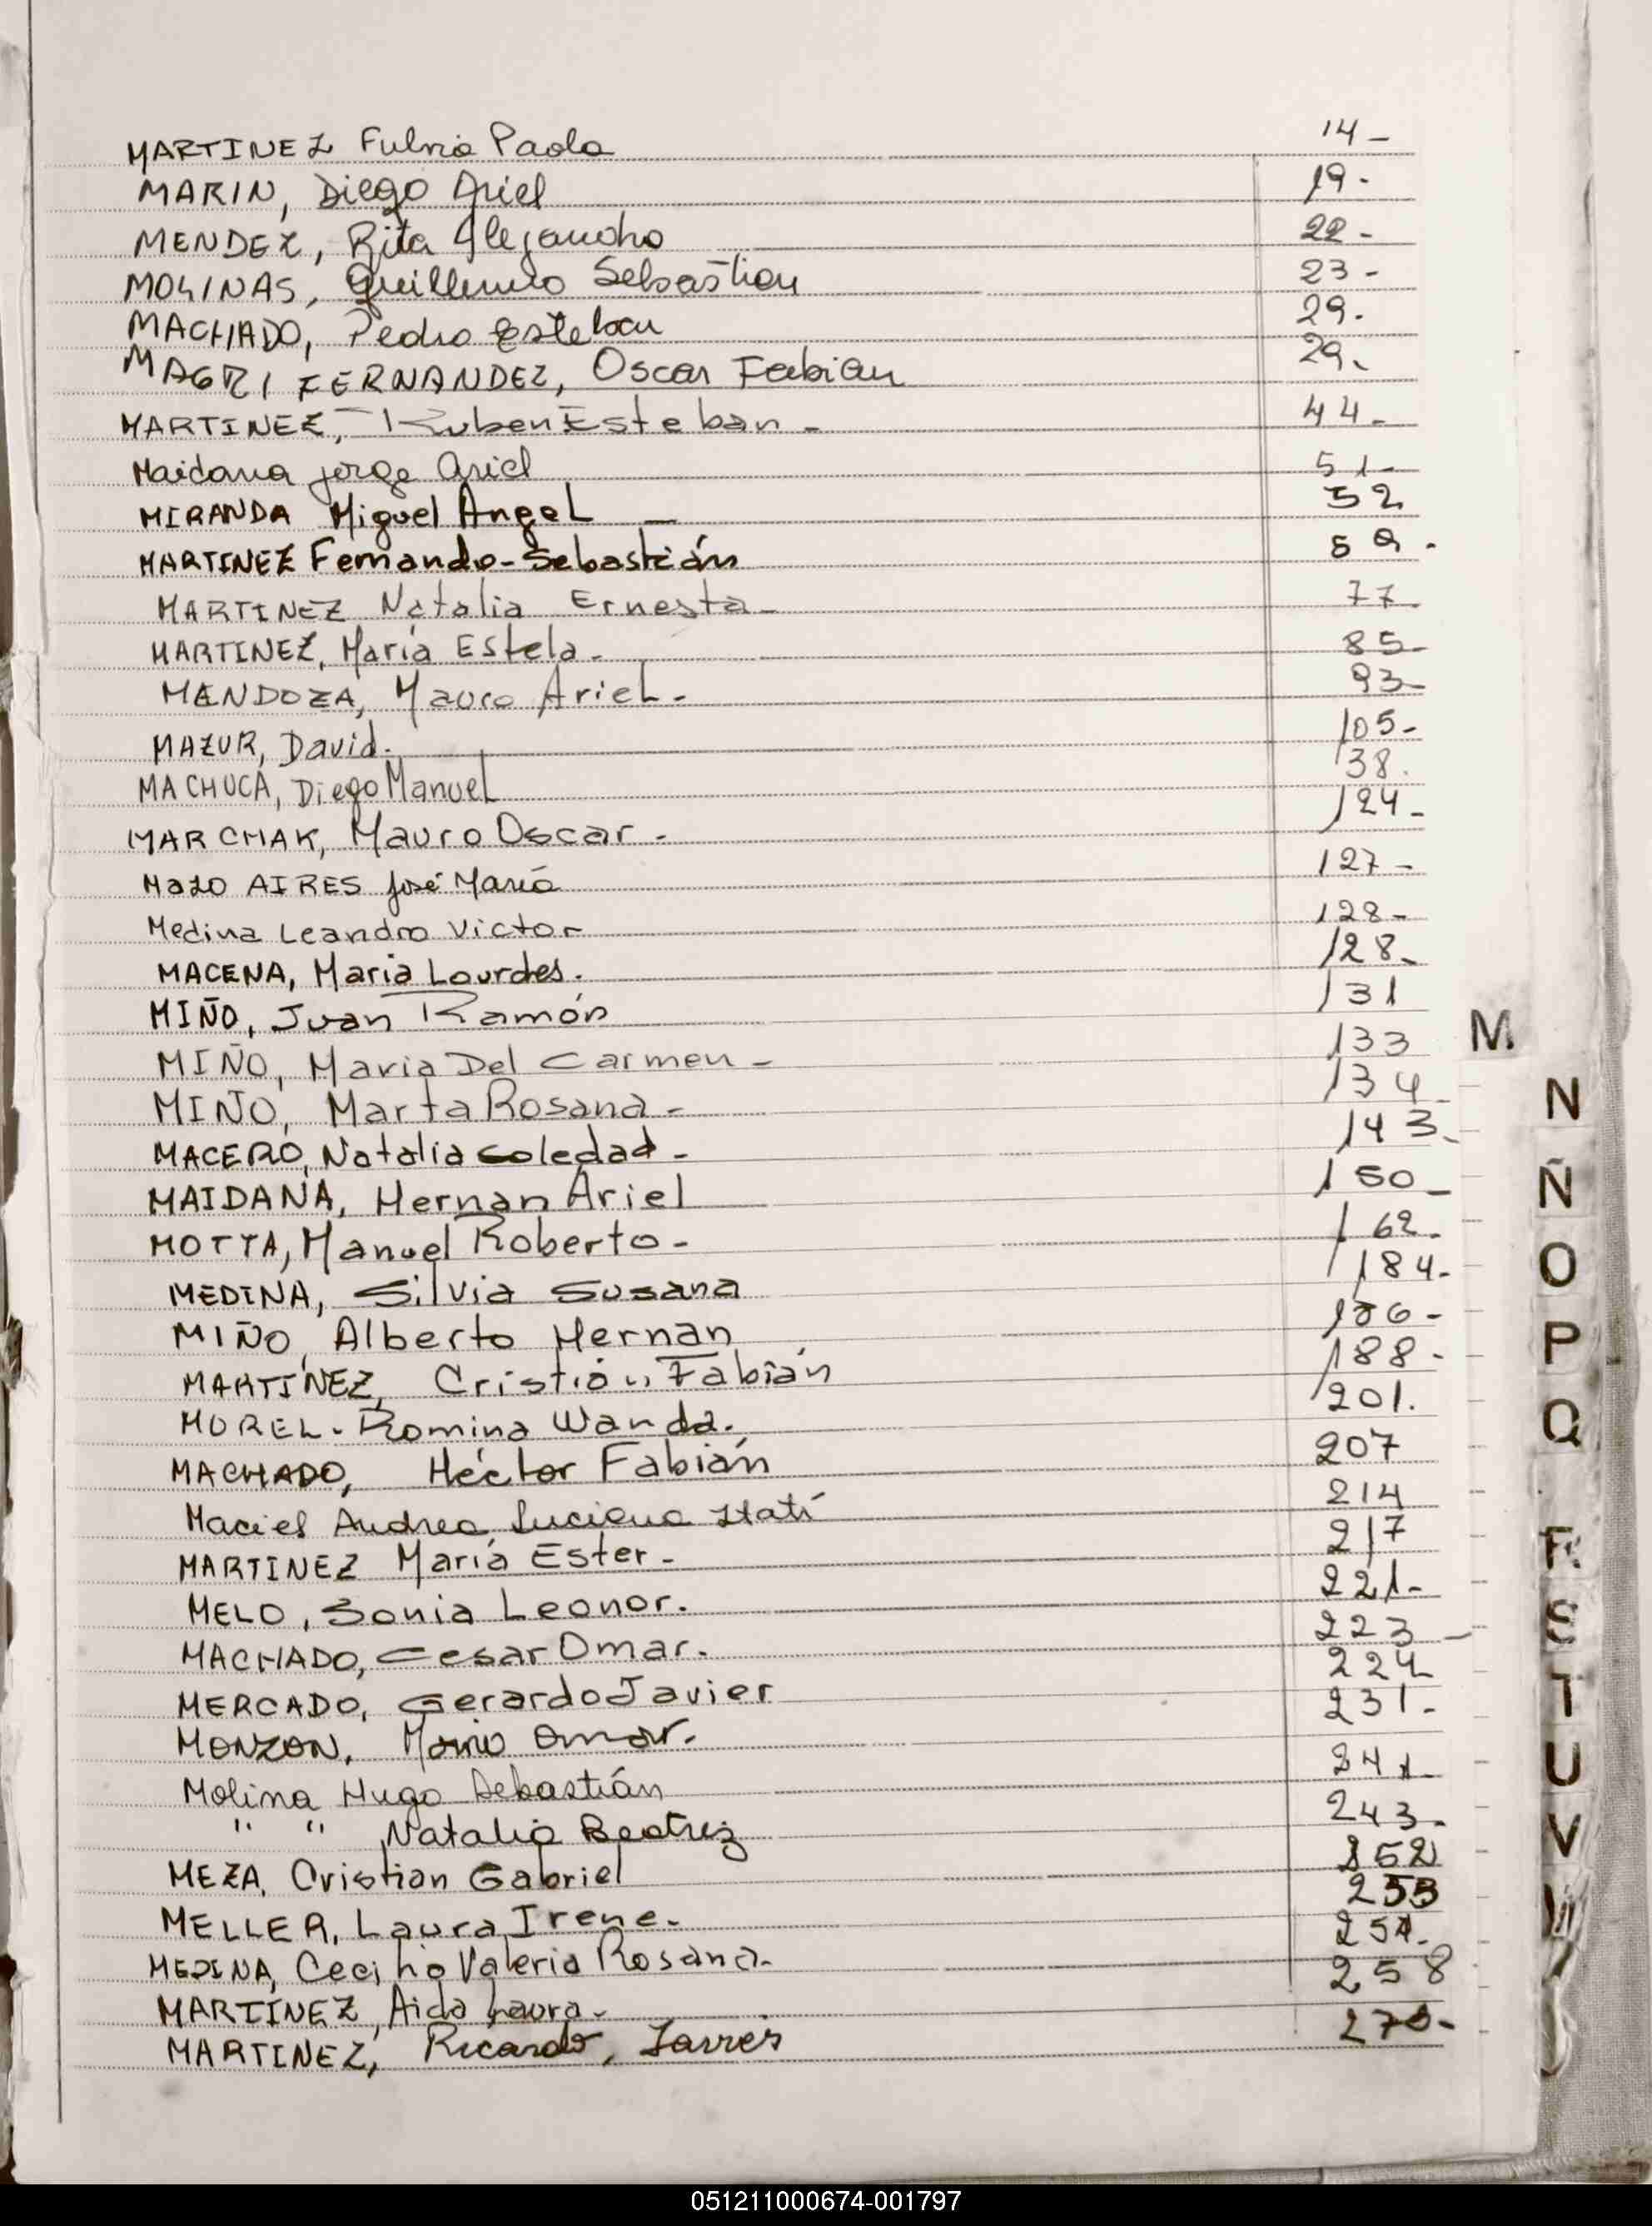 MARTINEZ Fulvia Paola 14-
MARIN, Diego Ariel 19-
MENDEZ, Rita Alejandra 22-
MOLINAS, Guillermo Sebastian 23-
MACHADO, Pedro Esteban 29.
MAGRI FERNANDEZ, Oscar Fabian 29.
MARTINEZ, Ruben Esteban - 44-
Maidana jorge ariel 51-
MIRANDA Miguel Angel - 52
MARTINEZ Fernando-Sebastián 59.
MARTINEZ Natalia Ernesta- 77.
MARTINEZ, María Estela- 85-
MENDOZA, Mauro Ariel- 93-
MAZUR, David. 105-
MACHUCA, Diego Manuel 138.
MARCHAK, Mauro Oscar- 124-
MAZO AIRES José María 127-
Medina Leandro Victor 128-
MACENA, Maria Lourdes. 128-
MIÑO, Juan Ramón 131
MIÑO, Maria Del Carmen- 133
MIÑO, Marta Rosana- 134
MACERO, Natalia Soledad- 143-
MAIDANA, Hernan Ariel 150-
MOTTA, Manuel Roberto- 162.
MEDINA, Silvia Susana 184-
MIÑO, Alberto Hernan 186-
MARTÍNEZ, Cristián Fabián 188-
MOREL- Romina Wanda. 201.
MACHADO, Héctor Fabián 207
Maciel Andrea Luciana Itatí 214
MARTINEZ María Ester- 217
MELO, Sonia Leonor. 221-
MACHADO, Cesar Omar. 223-
MERCADO, Gerardo Javier 224
MONZON, Mario Omar. 231-
Molina Hugo Sebastián 241-
" " Natalia Beatriz 243-
MEZA, Cristian Gabriel 252
MELLER, Laura Irene- 253
MEDINA, Cecilia Valeria Rosana- 254.
MARTÍNEZ, Aida Laura- 258
MARTINEZ, Ricardo, Javier 270-
M
N
Ñ
O
P
Q
R
S
T
U
V
051211000674-001797